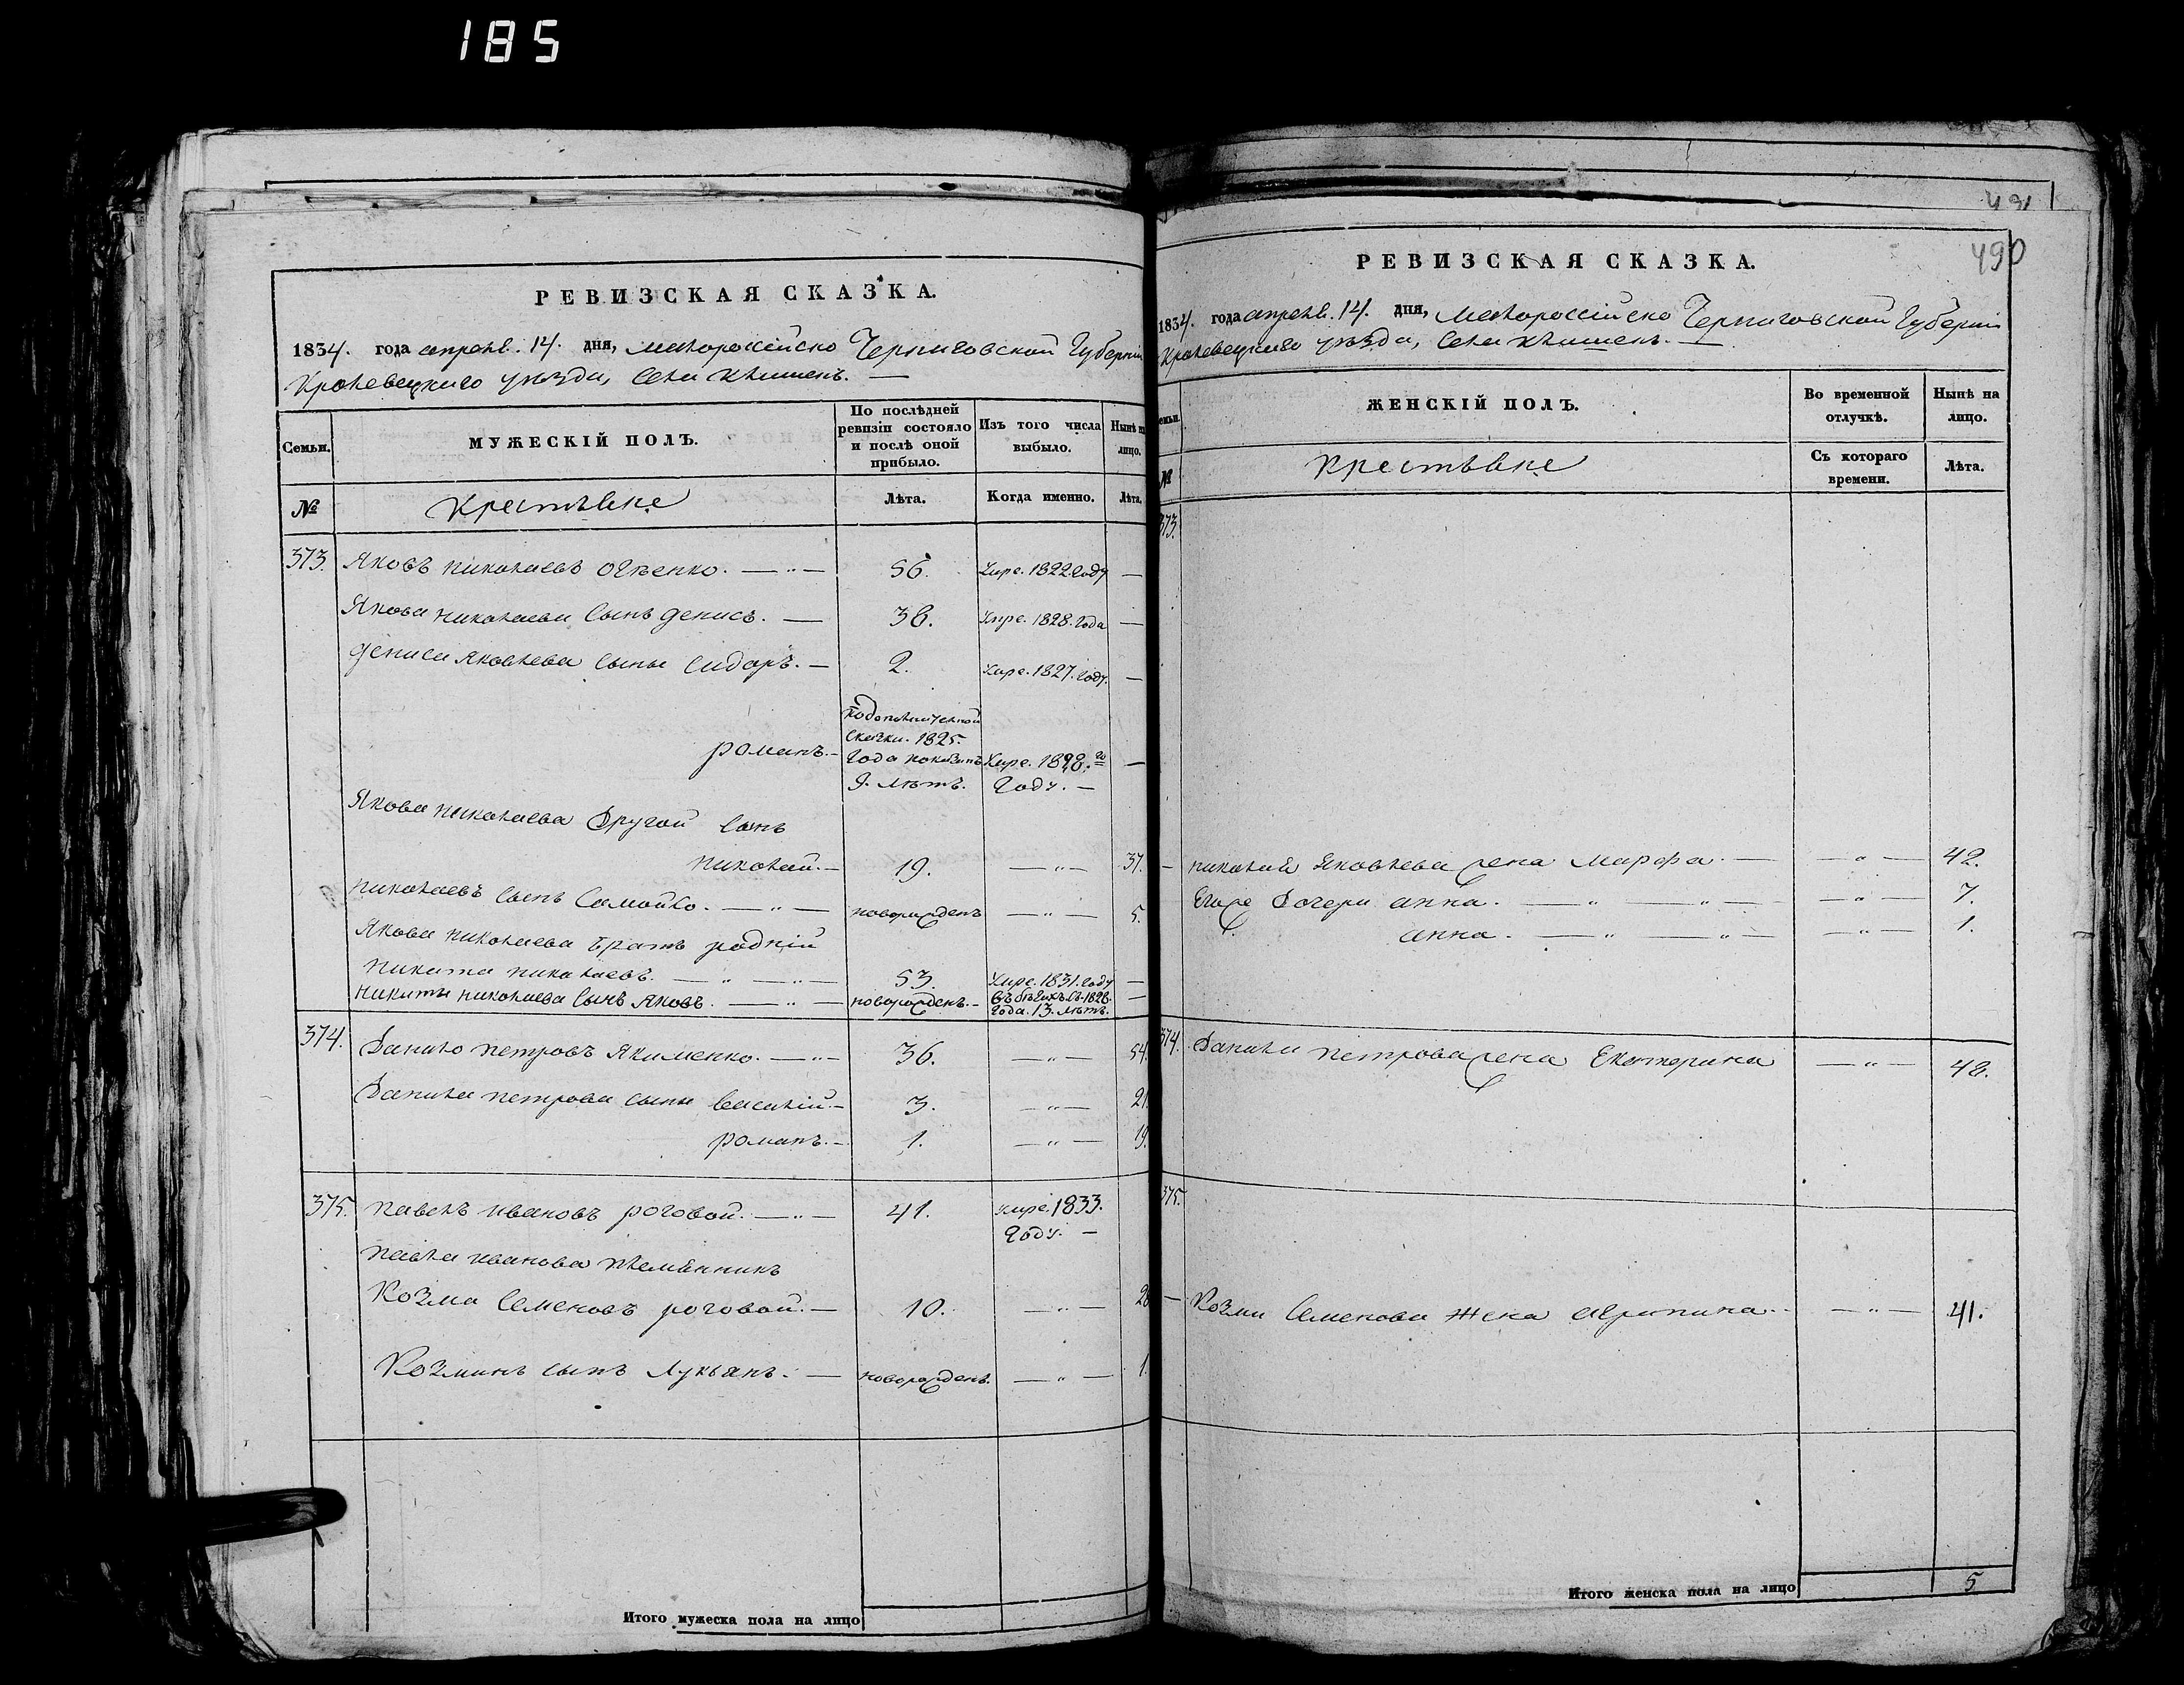 185
РЕВИЗСКАЯ СКАЗКА.
1834. года апрелѣ. 14. дня, Малороссійско Черниговской Губерніи
Кролевецкаго уѣзда, Села Клишекъ. —
Семьи.
МУЖЕСКІЙ ПОЛЪ.
По послѣдней ревизіи состояло и послѣ оной прибыло.
Изъ того числа выбыло.
Нынѣ на лицо.
№
Крестьяне
Лѣта.
Когда именно.
Лѣта.
373. Яковъ николаевъ — " — 56. Умре. 1822 году —
Якова николаева Сынъ денисъ. — 36. Умре. 1828. года —
дениса Яковлева сыны Сидоръ. — 2. Умре. 1827. году. —
романъ. — Сказки. 1825. года показанъ 9. лѣтъ. Умре. 1828. го году. — —
Якова николаева Другой сынъ
николай. — 19. — " — 37.
николаевъ сынъ Самойло. — " — новорожденъ — " — 5.
Якова николаева братъ родній
никита николаевъ. — " — " — 53. Умре. 1831. году —
никиты николаева Сынъ Яковъ. — " — новорожденъ. — въ бѣгахъ съ 1828. года. 13. лѣтъ. —
374. Данило петровъ Якименко. — " — 36. — " — 54.
Данила петрова сыны Василій. — 3. — " — 21.
романъ. — 1. — " — 19.
375. павелъ ивановъ роговой. — " — 41. умре. 1833. году. —
павла иванова племянникъ
Козма Семеновъ роговой. — 10. — " — 28
Козминъ сынъ Лукьянъ. — новорожденъ. — " — 1.
Итого мужеска пола на лицо
491
490
РЕВИЗСКАЯ СКАЗКА.
1834. года апрелѣ. 14. дня, Малороссійско Черниговской Губерніи
Кролевецкаго уѣзда, Села Клишекъ. —
Семьи.
ЖЕНСКІЙ ПОЛЪ.
Во временной отлучкѣ.
Нынѣ на лицо.
№
Крестьяне
Съ котораго времени.
Лѣта.
373.
— николая Яковлева жена Марфа. — — " — 42.
Егоже Дочери анна. — " — " — — " — 7.
анна. — " — " — — " — 1.
374. Данила петрова жена Екатерина — " — 48.
375.
— Козми Семенова жена агрипина. — " — 41.
Итого женска пола на лицо 5